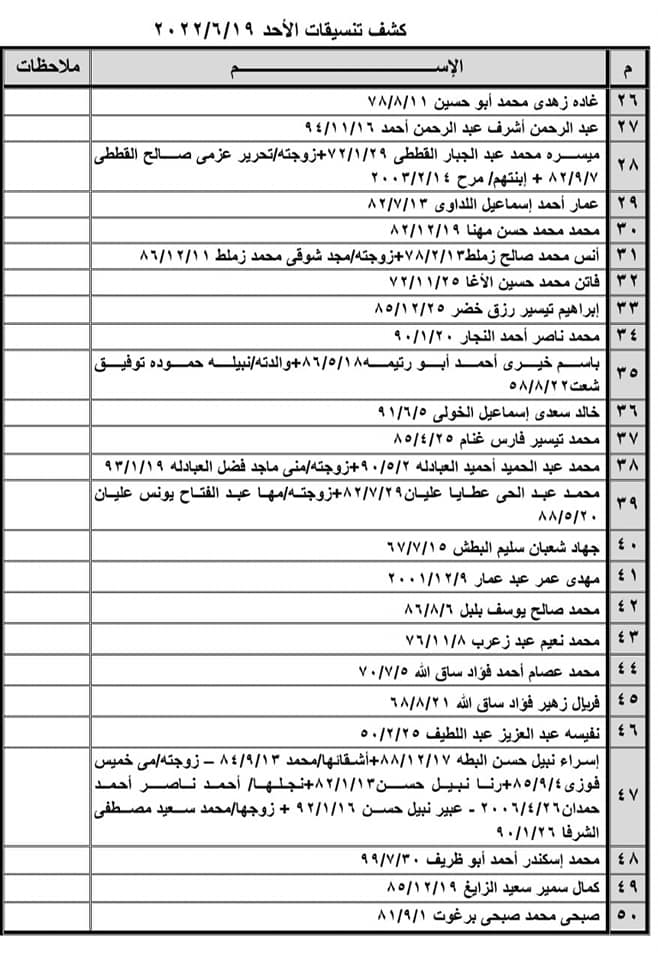 كشف تنسيقات الأحد ٢٠٢٢/٦/١٩
م الإســـم ملاحظات
٢٦ غاده زهدى محمد أبو حسين ٧٨/٨/١١
٢٧ عبد الرحمن أشرف عبد الرحمن أحمد ٩٤/١١/١٦
٢٨ ميسره محمد عبد الجبار القططى ٧٢/١/٢٩+زوجته/تحرير عزمى صالح القططى
٨٢/٩/٧ + إبنتهم/ مرح ٢٠٠٣/٢/١٤
٢٩ عمار أحمد إسماعيل اللداوى ٨٢/٧/١٣
٣٠ محمد محمد حسن مهنا ٨٢/١٢/١٩
٣١ أنس محمد صالح زملط٧٨/٢/١٣+زوجته/مجد شوقى محمد زملط ٨٦/١٢/١١
٣٢ فاتن محمد حسين الأغا ٧٢/١١/٢٥
٣٣ إبراهيم تيسير رزق خضر ٨٥/١٢/٢٥
٣٤ محمد ناصر أحمد النجار ٩٠/١/٢٠
٣٥ باسم خيرى أحمد أبو رتيمه٨٦/٥/١٨+والدته/نبيله حموده توفيق
شعت٥٨/٨/٢٢
٣٦ خالد سعدى إسماعيل الخولى ٩١/٦/٥
٣٧ محمد تيسير فارس غنام ٨٥/٤/٢٥
٣٨ محمد عبد الحميد أحميد العبادله ٩٠/٥/٢+زوجته/منى ماجد فضل العبادله ٩٣/١/١٩
٣٩ محمد عبد الحى عطايا عليان٨٢/٧/٢٩+زوجته/مها عبد الفتاح يونس عليان
٨٨/٥/٢٠
٤٠ جهاد شعبان سليم البطش ٦٧/٧/١٥
٤١ مهدى عمر عبد عمار ٢٠٠١/١٢/٩
٤٢ محمد صالح يوسف بلبل ٨٦/٨/٦
٤٣ محمد نعيم عبد زعرب ٧٦/١١/٨
٤٤ محمد عصام أحمد فؤاد ساق الله ٧٠/٧/٥
٤٥ فريال زهير فؤاد ساق الله ٦٨/٨/٢١
٤٦ نفيسه عبد العزيز عبد اللطيف ٥٠/٢/٢٥
٤٧ إسراء نبيل حسن البطه ٨٨/١٢/١٧+أشقائها/محمد ٨٤/٩/١٣ – زوجته/مى خميس
فوزى٨٥/٩/٤+رنا نبيل حسن٨٢/١/١٣+نجلها/ أحمد ناصر أحمد
حمدان٢٠٠٦/٤/٢٦ - عبير نبيل حسن ٩٢/١/١٦ + زوجها/محمد سعيد مصطفى
الشرفا ٩٠/١/٢٦
٤٨ محمد إسكندر أحمد أبو ظريف ٩٩/٧/٣٠
٤٩ كمال سمير سعيد الزايغ ٨٥/١٢/١٩
٥٠ صبحى محمد صبحى برغوت ٨١/٩/١